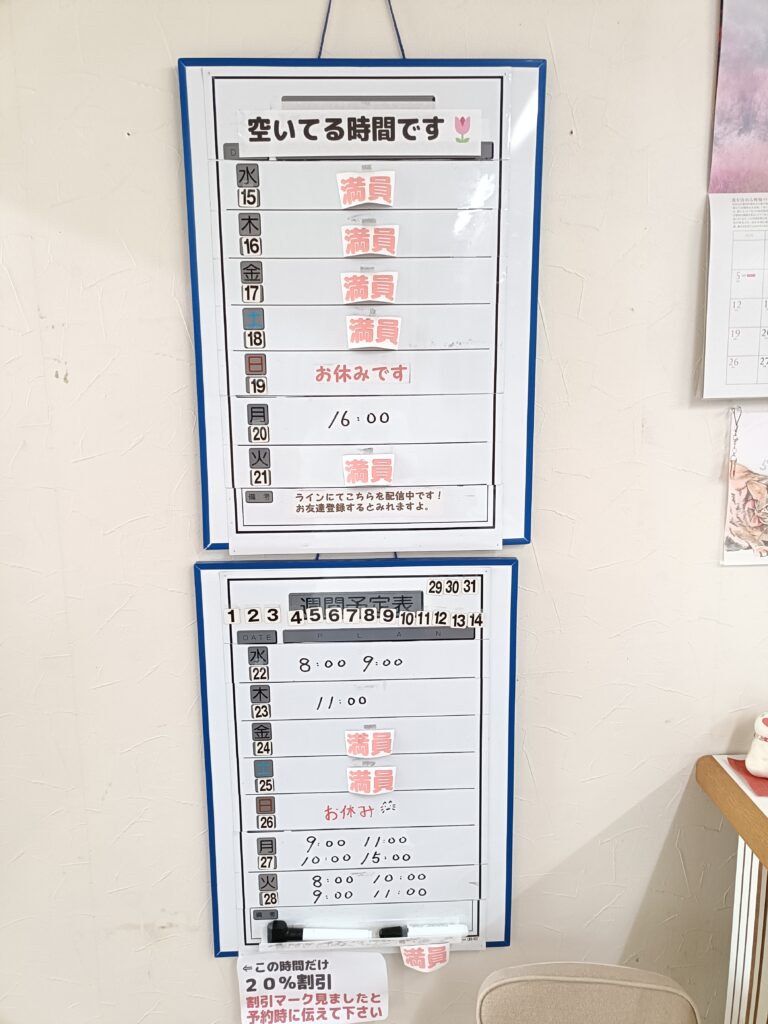 空いてる時間です
水
15
満員
木
16
満員
金
17
満員
土
18
満員
日
19
お休みです
月
20
16:00
火
21
満員
備考
ラインにてこちらを配信中です!
お友達登録するとみれますよ。
29 30 31
週間予定表
1 2 3 4 5 6 7 8 9 10 11 12 13 14
DATE PLAN
水
22
8:00 9:00
木
23
11:00
金
24
満員
土
25
満員
日
26
お休み
月
27
9:00 11:00
10:00 15:00
火
28
8:00 10:00
9:00 11:00
備考
満員
⇐この時間だけ
20%割引
割引マーク見ましたと
予約時に伝えて下さい
5
12 13
19 20
26 27